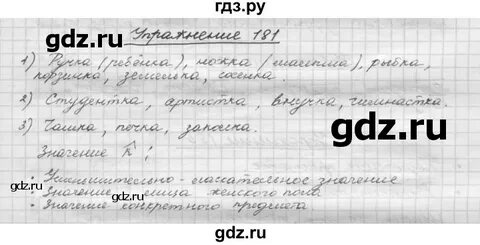 гдз.ру
Упражнение 181
1) Ручка (ребёнка), ножка (малыша), рыбка,
корзинка, земелька, сосенка.
2) Студентка, артистка, внучка, гимнастка.
3) Чашка, почка, заколка.
Значение к:
• Уменьшительно-ласкательное значение
• Значение лица женского пола
• Значение конкретного предмета
gdz.ru
gdz.ru
gdz.ru
gdz.ru
gdz.ru